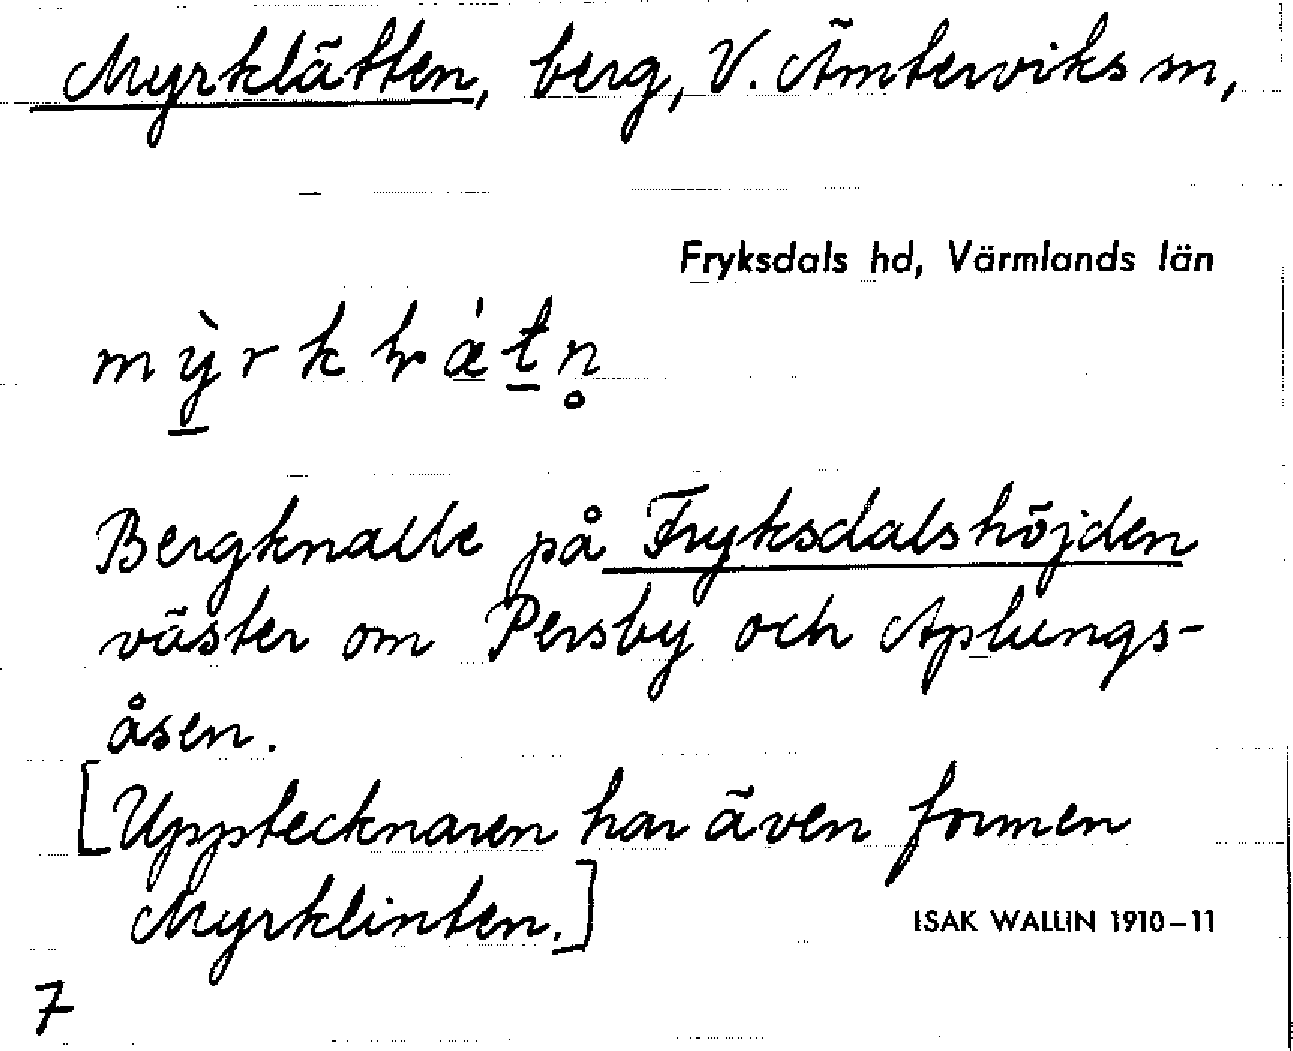 Myrklätten, berg, V. Ämterviks sn,
Fryksdals hd, Värmlands län
Bergknalle på Fryksdalshöjden
väster om Persby och Aplungs-
åsen.
[Upptecknaren har även formen
Myrklinten.]
ISAK WALLIN 1910–11
7